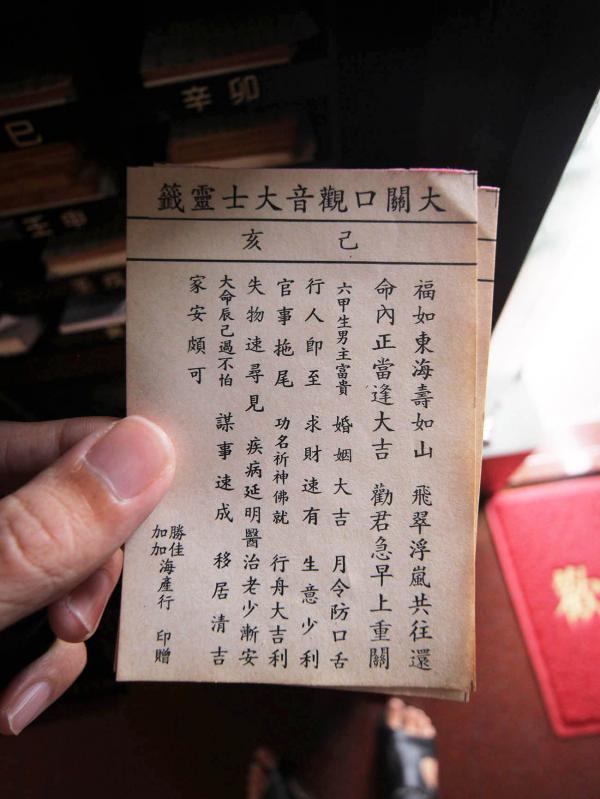 大關口觀音大士靈籤
己亥
福如東海壽如山 飛翠浮嵐共往還
命內正當逢大吉 勸君急早上重關
六甲生男主富貴 婚姻大吉 月令防口舌
行人卽至 求財速有 生意少利
官事拖尾 功名祈神佛就 行舟大吉利
失物速尋見 疾病延明醫治老少漸安
大命辰己過不怕 謀事速成 移居清吉
家安頗可
勝佳
加加
海產行 印贈
辛卯
巳
壬申
歡